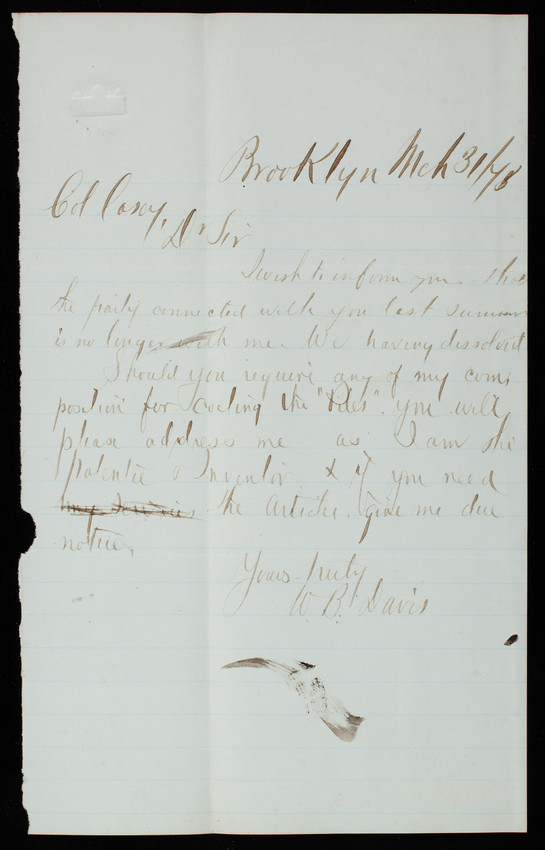 Brooklyn Mch 31/78
Col Casey,
Dr Sir
I wish to inform you that
the party connected with you last summer
is no longer with me. We having dissolved
Should you require any of my com,
position for coating the "Piles". You will
please address me as I am the
Patentee & Inventor. & if you need
my Services the article. give me due
notice,
Yours truly
W. B. Davis